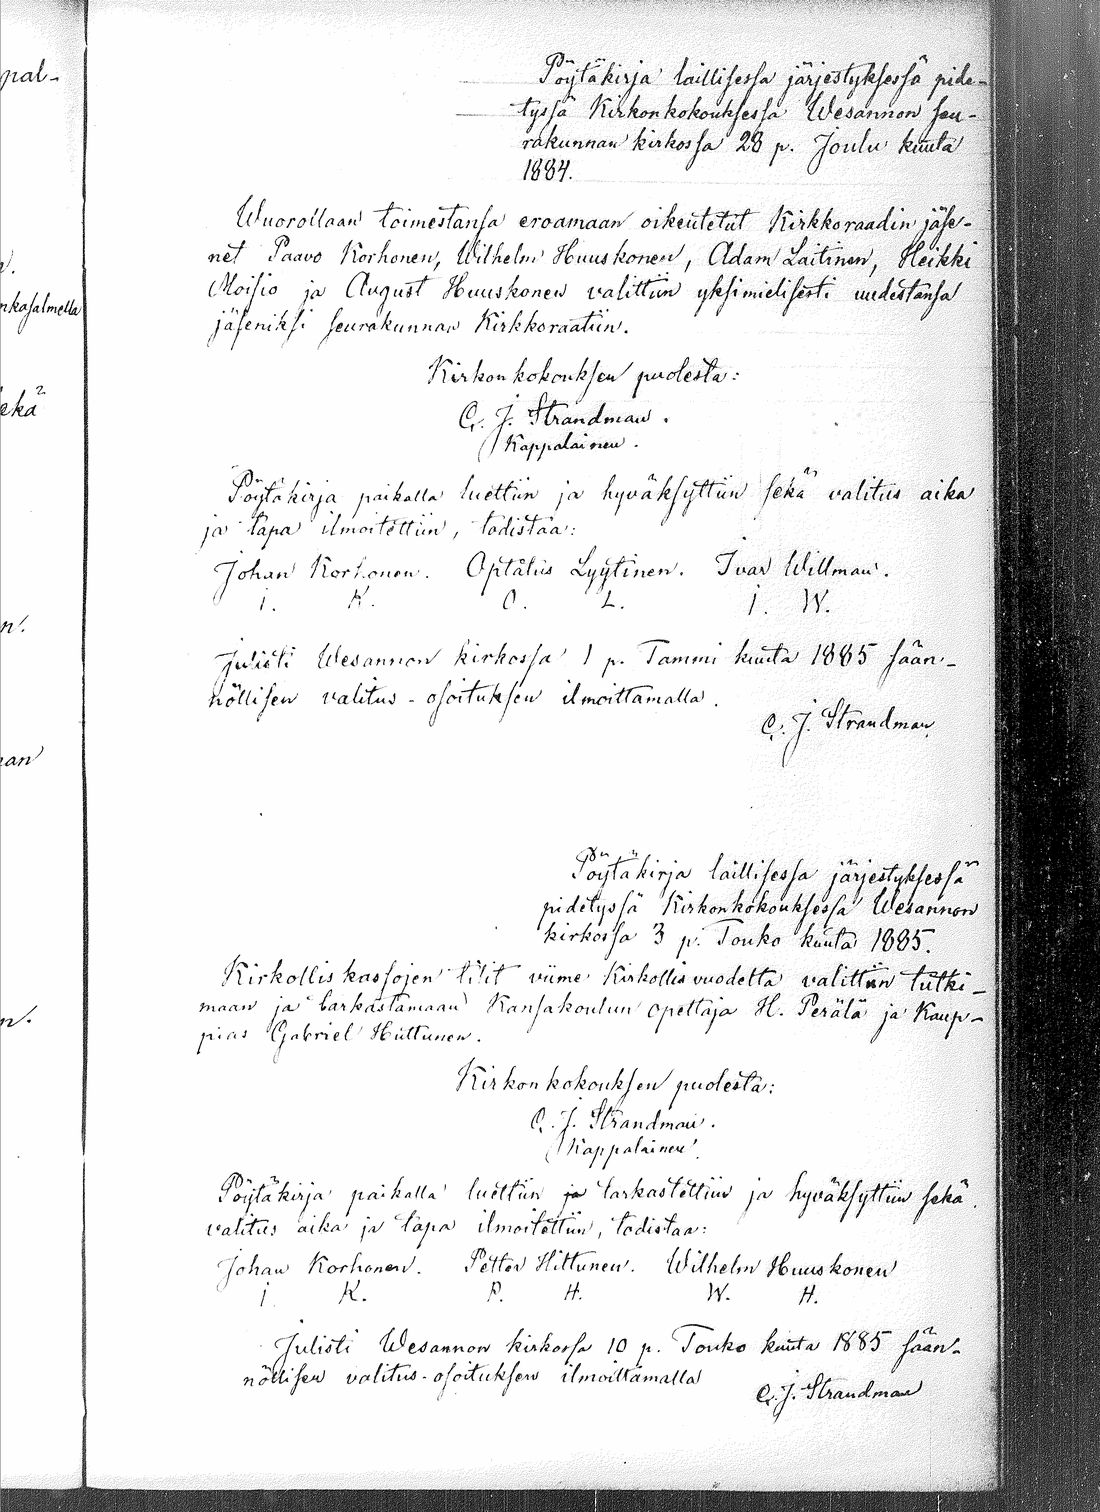 pal-
nkasalmella
ekä
n.
nan
n.
Pöytäkirja laillisessa järjestyksessä pide-
tyssä Kirkonkokouksessa Wesannon seu-
rakunnan kirkossa 28 p. Joulu kuuta
1884.
Wuorollaan toimestansa eroamaan oikeutetut Kirkkoraadin jäse-
net Paavo Korhonen, Wilhelm Huuskonen, Adam Laitinen, Heikki
Moisio ja August Huuskonen valittiin yksimielisesti uudestansa
jäseniksi seurakunnan Kirkkoraatiin.
Kirkonkokouksen puolesta:
C. J. Strandman.
Kappalainen.
Pöytäkirja paikalla luettiin ja hyväksyttiin sekä valitus aika
ja tapa ilmoitettiin, todistaa:
Johan Korhonen. Optatus Lyytinen. Ivar Willman.
I. K. O. L. I. W.
Julisti Wesannon kirkossa 1 p. Tammi kuuta 1885 sään-
nöllisen valitus-osoituksen ilmoittamalla.
C. J. Strandman
Pöytäkirja laillisessa järjestyksessä
pidetyssä Kirkonkokouksessa Wesannon
kirkossa 3 p. Touko kuuta 1885.
Kirkolliskassojen tilit viime Kirkollisvuodelta valittiin tutki-
maan ja tarkastamaan Kansakoulun opettaja H. Perälä ja Kaup-
pias Gabriel Hüttunen.
Kirkonkokouksen puolesta:
C. J. Strandman.
Kappalainen.
Pöytäkirja paikalla luettiin ja tarkastettiin ja hyväksyttiin sekä
valitus aika ja tapa ilmoitettiin, todistaa:
Johan Korhonen. Petter Hittunen. Wilhelm Huuskonen
I. K. P. H. W. H.
Julisti Wesannon kirkossa 10 p. Touko kuuta 1885 sään-
nöllisen valitus-osoituksen ilmoittamalla
C. J. Strandman